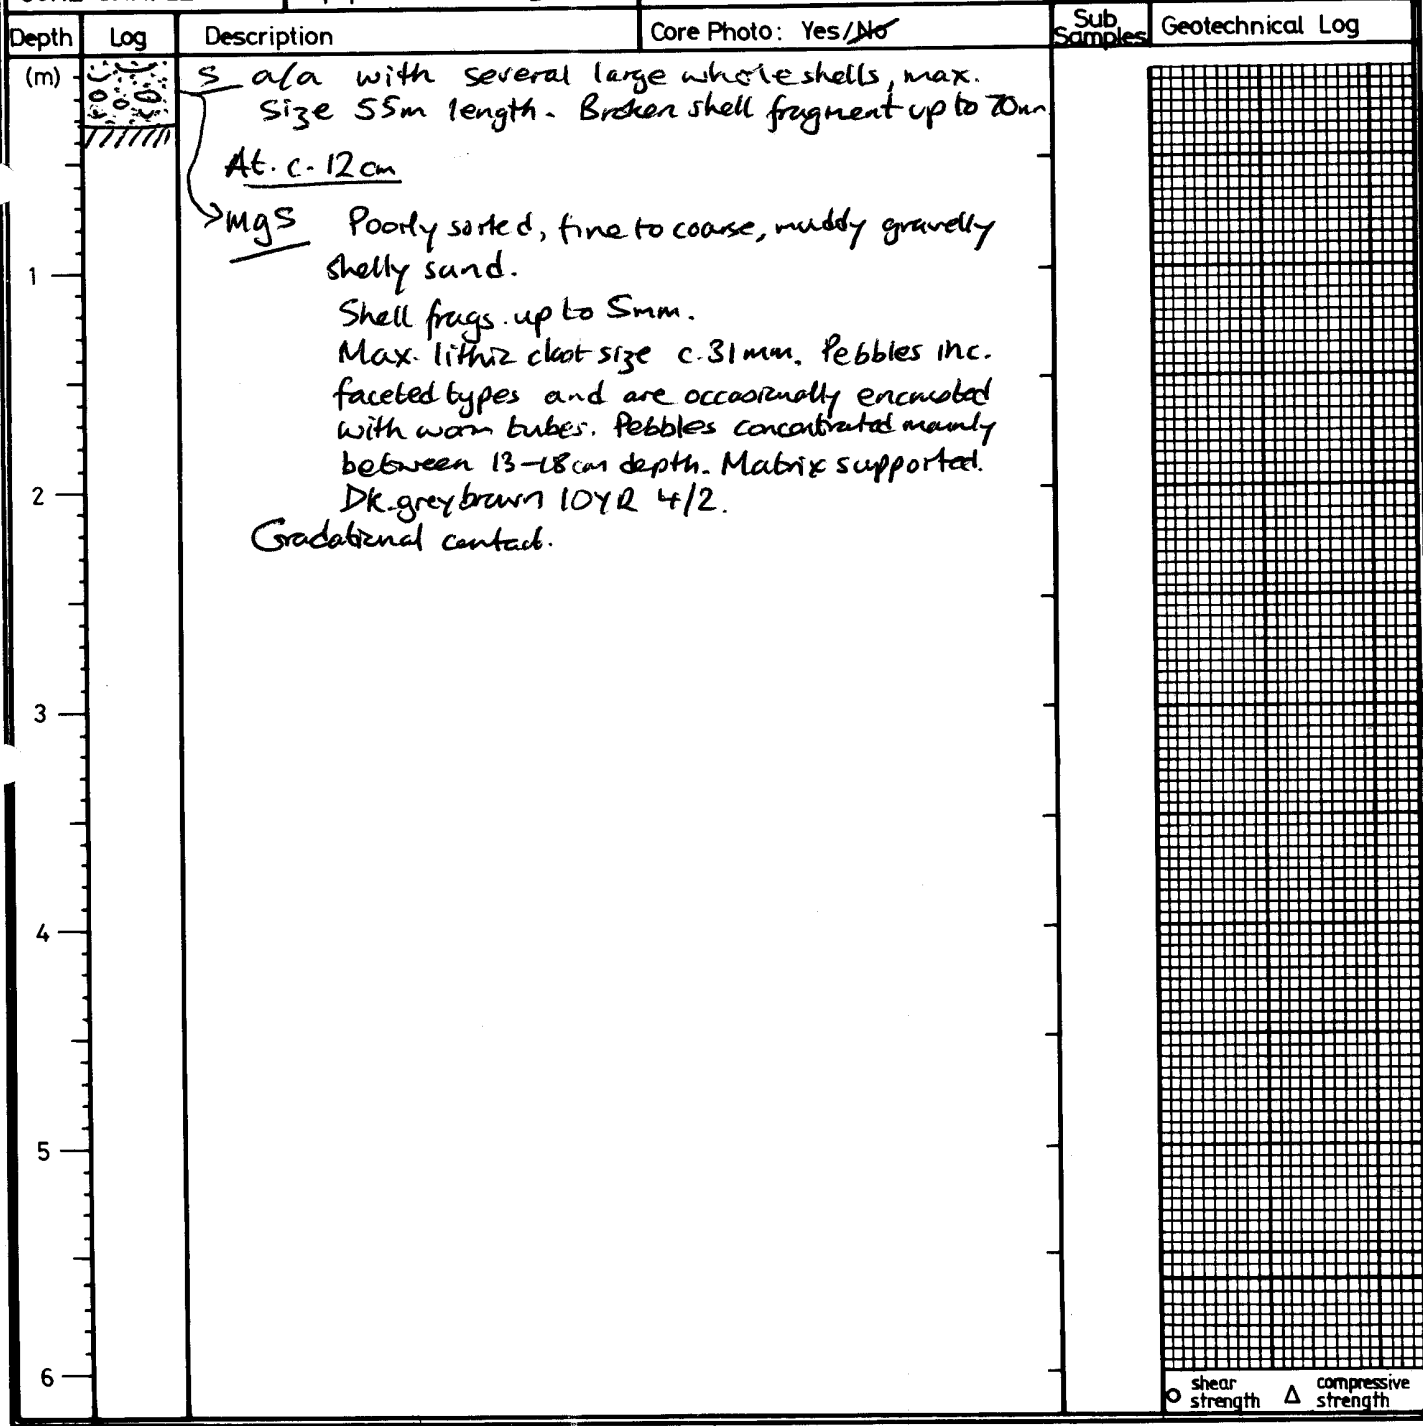 Depth Log Description Core Photo: Yes/No Sub Samples Geotechnical Log
(m)
S a/a with several large whole shells, max.
Size 55m length. Broken shell fragment up to 70mm
At. c. 12cm
mgS Poorly sorted, fine to coarse, muddy gravelly
shelly sand.
Shell frags. up to 5mm.
Max. lithic clast size c. 31mm. Pebbles inc.
faceted types and are occasionally encrusted
with worm tubes. Pebbles concentrated mainly
between 13-18cm depth. Matrix supported.
Dk. grey brown 10YR 4/2.
Gradational contact.
1
2
3
4
5
6
shear strength compressive strength